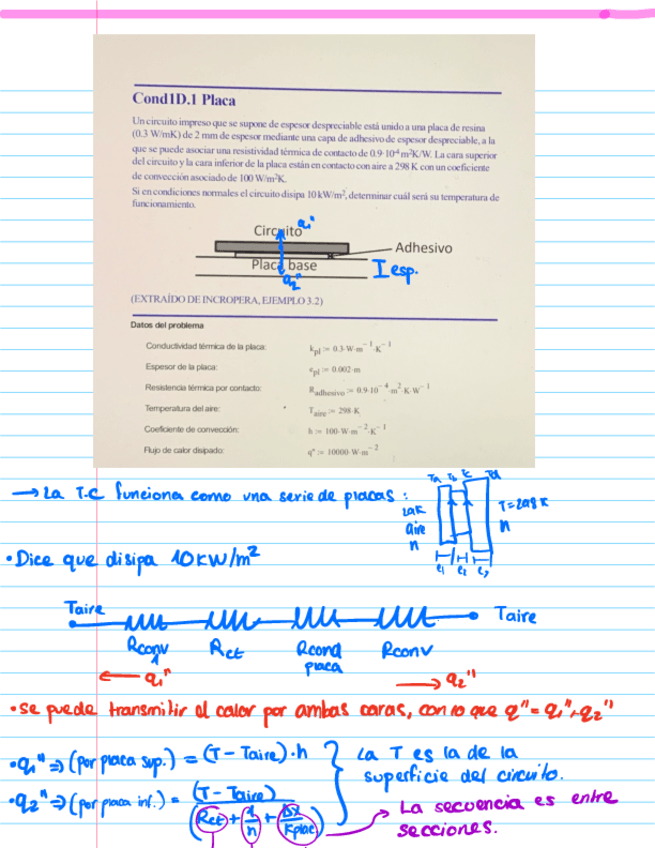 Cond1D.1 Placa
Un circuito impreso que se supone de espesor despreciable está unido a una placa de resina
(0.3 W/mK) de 2 mm de espesor mediante una capa de adhesivo de espesor despreciable, a la
que se puede asociar una resistividad térmica de contacto de 0.9·10⁻⁴ m²K/W. La cara superior
del circuito y la cara inferior de la placa están en contacto con aire a 298 K con un coeficiente
de convección asociado de 100 W/m²K.
Si en condiciones normales el circuito disipa 10 kW/m², determinar cuál será su temperatura de
funcionamiento.
Circuito q₁"
Adhesivo
Placa base
I esp.
q₂"
(EXTRAÍDO DE INCROPERA, EJEMPLO 3.2)
Datos del problema
Conductividad térmica de la placa: k_pl := 0.3·W·m⁻¹·K⁻¹
Espesor de la placa: e_pl := 0.002·m
Resistencia térmica por contacto: R_adhesivo := 0.9·10⁻⁴·m²·K·W⁻¹
Temperatura del aire: T_aire := 298·K
Coeficiente de convección: h := 100·W·m⁻²·K⁻¹
Flujo de calor disipado: q" := 10000·W·m⁻²
→ La T.C funciona como una serie de placas:
Ta Tb Tc Td
aire
n
T=298K
n
e₁ e₂ e₃
• Dice que disipa 10KW/m²
Taire Taire
Rconv Rct Rcond Rconv
1 placa
← q₁" → q₂"
• se puede transmitir el calor por ambas caras, con lo que q" = q₁"+q₂"
• q₁" ⇒ (por placa sup.) = (T - Taire)·h
La T es la de la
superficie del circuito.
• q₂" ⇒ (por placa inf.) = (T - Taire) / (Rct + 1/h + Δx/Kplac)
→ La secuencia es entre
secciones.